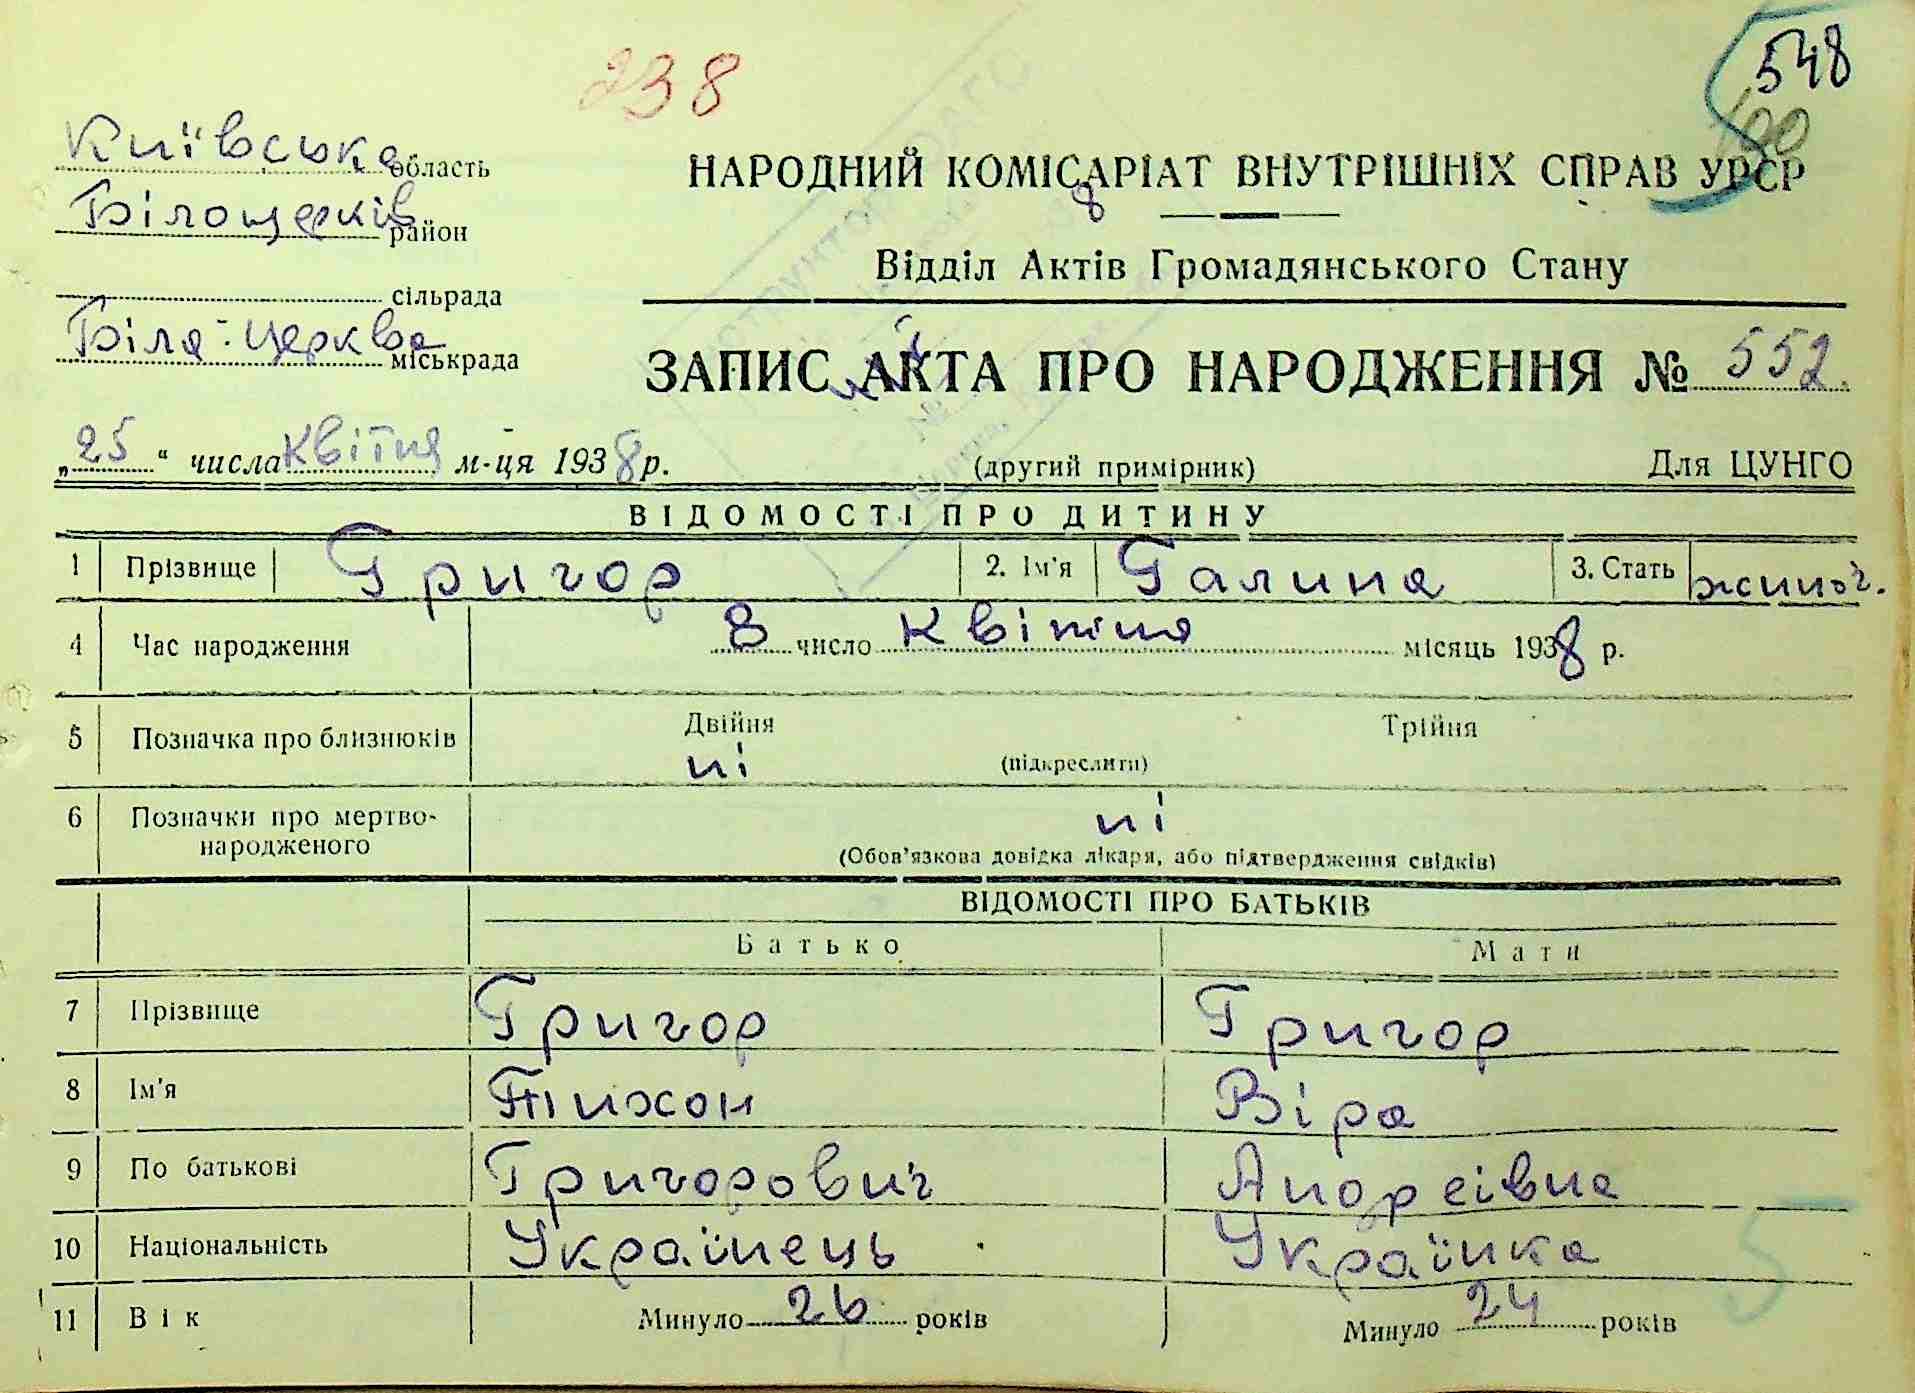 238
548
100
Київська область
Білоцерків район
сільрада
Біла-Церква міськрада
НАРОДНИЙ КОМІСАРІАТ ВНУТРІШНІХ СПРАВ УРСР
8
Відділ Актів Громадянського Стану
ЗАПИС АКТА ПРО НАРОДЖЕННЯ № 552.
„25“ числа квітня м-ця 1938 р.
(другий примірник)
Для ЦУНГО
ВІДОМОСТІ ПРО ДИТИНУ
1 Прізвище Григор 2. Ім'я Галина 3. Стать жиноч.
4 Час народження 8 число квітня місяць 1938 р.
5 Позначка про близнюків Двійня Трійня
ні (підкреслити)
6 Позначки про мертво-народженого ні
(Обов'язкова довідка лікаря, або підтвердження свідків)
ВІДОМОСТІ ПРО БАТЬКІВ
Батько Мати
7 Прізвище Григор Григор
8 Ім'я Тихон Віра
9 По батькові Григорович Андреівна
10 Національність Українець Українка
11 Вік Минуло 26 років Минуло 24 років
5